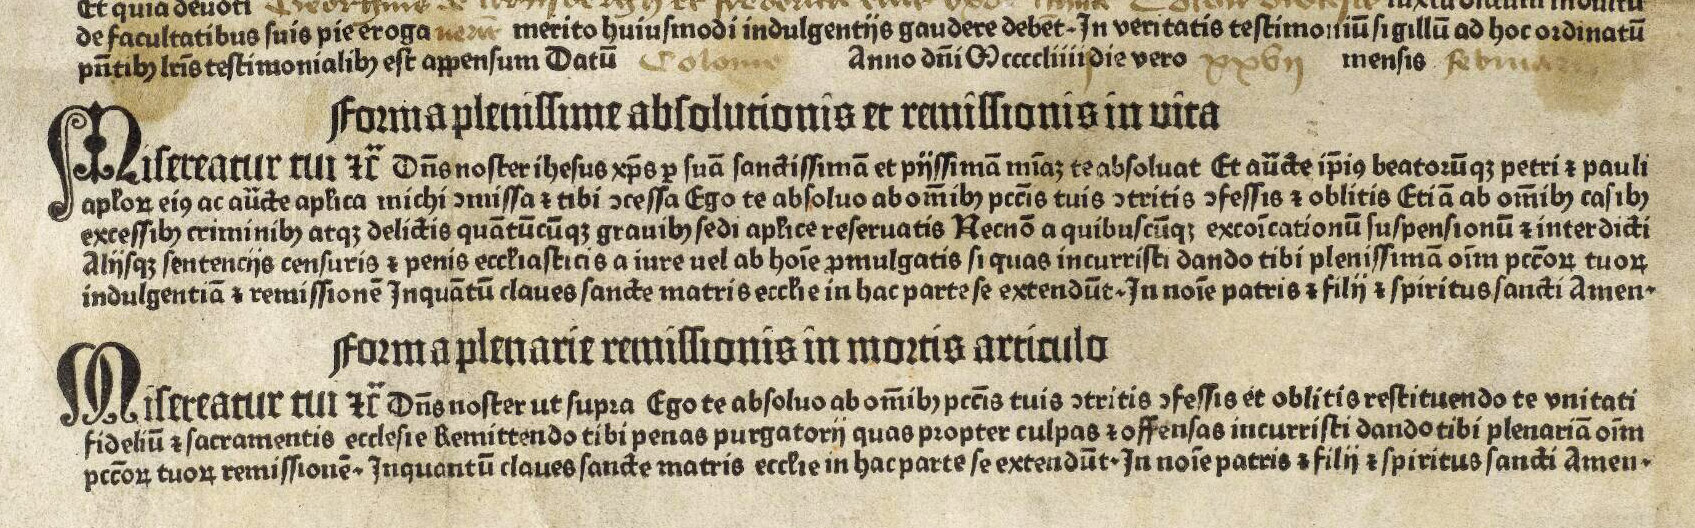 Et quia devoti Georgius de
de facultatibus suis pie eroga verūt merito huiusmodi indulgentijs gaudere debet· In veritatis testimoniū sigillū ad hoc ordinatū
pn̄tibꝫ lr̄is testimonialibꝫ est appensum Datū Colonie Anno dn̄i Mccccliiii die vero xxvij mensis februarii
Forma plenissime absolutionis et remissionis in vita
Misereatur tui ⁊c̄ Dn̄s noster ihesus xp̄s ꝑ suā sanctissimā et pijssimā mīaꝫ te absoluat Et auc̄te ip̄iꝰ beatorūqꝫ petri ⁊ pauli
apl̄oꝝ eiꝰ ac auc̄te apl̄ica michi ↄmissa ⁊ tibi ↄcessa Ego te absoluo ab om̄ibꝫ pcc̄is tuis ↄtritis ↄfessis ⁊ oblitis Etiā ab om̄ibꝫ casibꝫ
excessibꝫ criminibꝫ atqꝫ delictis quātūcūqꝫ grauibꝫ sedi apl̄ice reseruatis Necnō a quibuscūqꝫ excoīcationū suspensionū ⁊ interdicti
Alijsqꝫ sentencijs censuris ⁊ penis eccl̄iasticis a iure uel ab hoīe ꝓmulgatis si quas incurristi dando tibi plenissimā oīm pcc̄oꝝ tuoꝝ
indulgentiā ⁊ remissionē Inquātū claues sancte matris eccl̄ie in hac parte se extendūt· In noīe patris ⁊ filij ⁊ spiritus sancti Amen·
Forma plenarie remissionis in mortis articulo
Misereatur tui ⁊c̄ Dn̄s noster ut supra Ego te absoluo ab om̄ibꝫ pcc̄is tuis ↄtritis ↄfessis et oblitis restituendo te vnitati
fideliū ⁊ sacramentis ecclesie Remittendo tibi penas purgatorij quas propter culpas ⁊ offensas incurristi dando tibi plenariā oīm
pcc̄oꝝ tuoꝝ remissionē· Inquantū claues sancte matris eccl̄ie in hac parte se extendūt· In noīe patris ⁊ filij ⁊ spiritus sancti Amen·